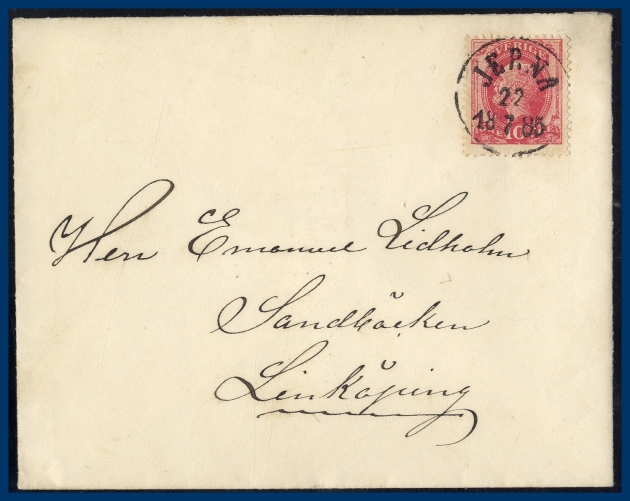 SVERIGE
JERNA
22
18 7 85
Herr Emanuel Lidholm
Sandbäcken
Linköping